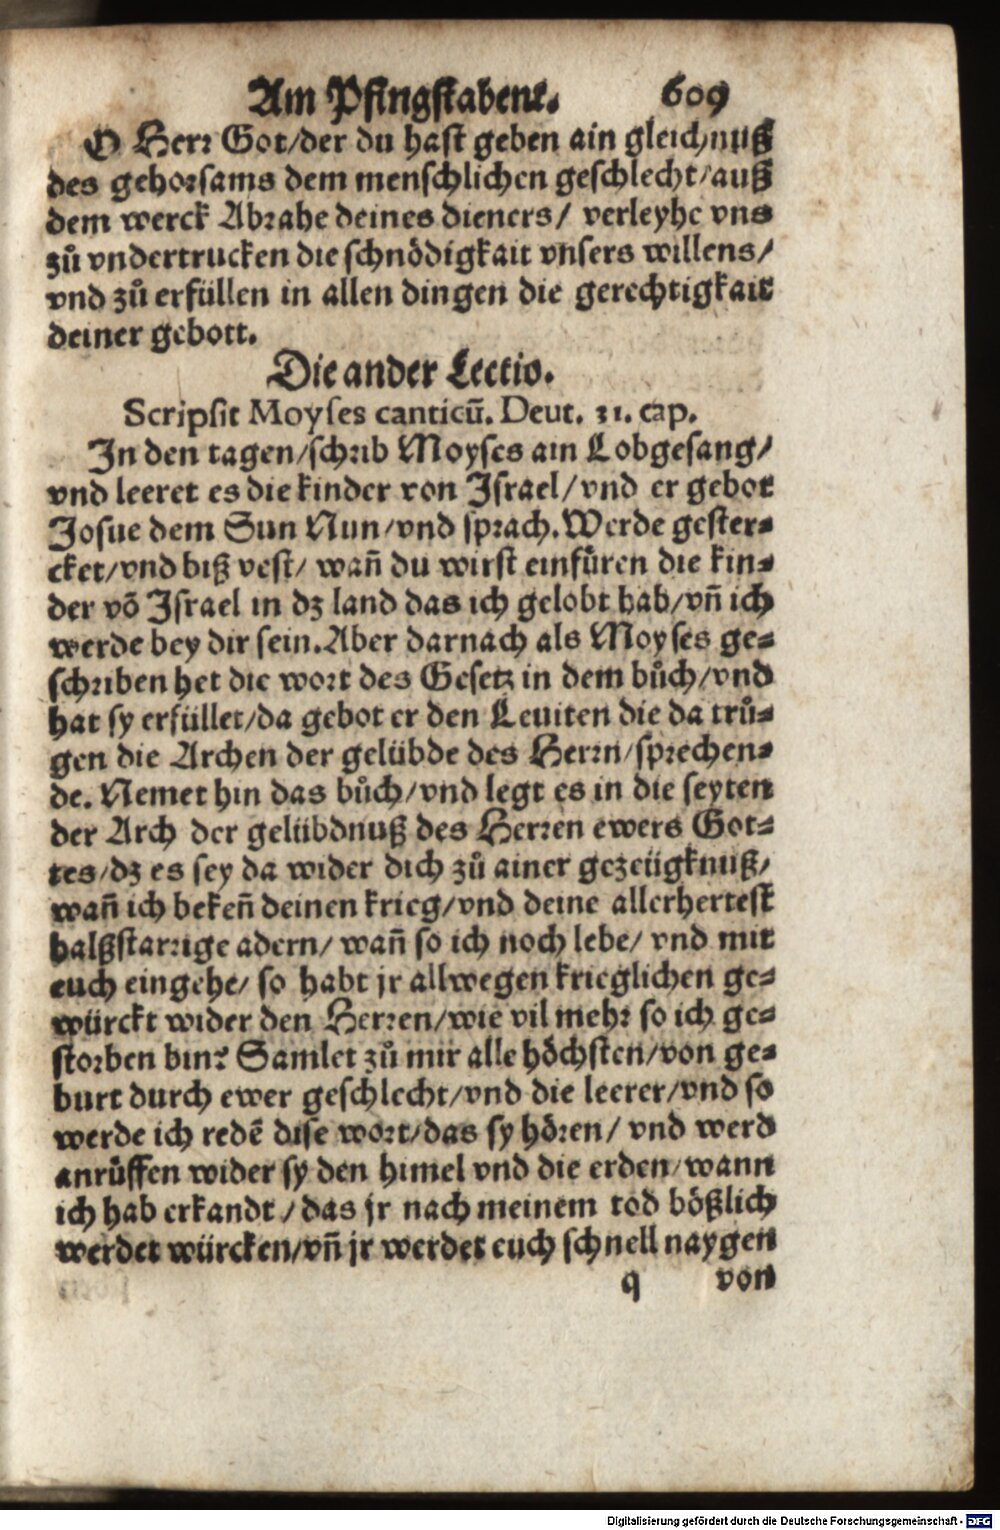 Am Pfingstabent. 609
O Herr Got/der du hast geben ain gleichnuß
des gehorsams dem menschlichen geschlecht/auß
dem werck Abrahe deines dieners/ verleyhe vns
zů vndertrucken die schnödigkait vnsers willens/
vnd zů erfüllen in allen dingen die gerechtigkait
deiner gebott.
Die ander Lectio.
Scripsit Moyses canticū. Deut. 31. cap.
In den tagen/schrib Moyses ain Lobgesang/
vnd leeret es die kinder von Israel/vnd er gebot
Josue dem Sun Nun/vnd sprach. Werde gester-
cket/vnd biß vest/ wañ du wirst einfüren die kin-
der võ Israel in dz land das ich gelobt hab/vñ ich
werde bey dir sein. Aber darnach als Moyses ge-
schriben het die wort des Gesetz in dem bůch/vnd
hat sy erfüllet/da gebot er den Leuiten die da trů-
gen die Archen der gelübde des Herrn/sprechen-
de. Nemet hin das bůch/vnd legt es in die seyten
der Arch der gelübdnuß des Herren ewers Got-
tes/dz es sey da wider dich zů ainer gezeügknuß/
wañ ich bekeñ deinen krieg/vnd deine allerhertest
halßstarrige adern/ wañ so ich noch lebe/ vnd mit
euch eingehe/ so habt jr allwegen krieglichen ge-
würckt wider den Herren/wie vil mehr so ich ge-
storben bin? Samlet zů mir alle höchsten/von ge-
burt durch ewer geschlecht/vnd die leerer/vnd so
werde ich redē dise wort/das sy hören/ vnd werd
anrůffen wider sy den himel vnd die erden/wann
ich hab erkandt/das jr nach meinem tod bößlich
werdet würcken/vñ jr werdet euch schnell naygen
q von
Digitalisierung gefördert durch die Deutsche Forschungsgemeinschaft - DFG